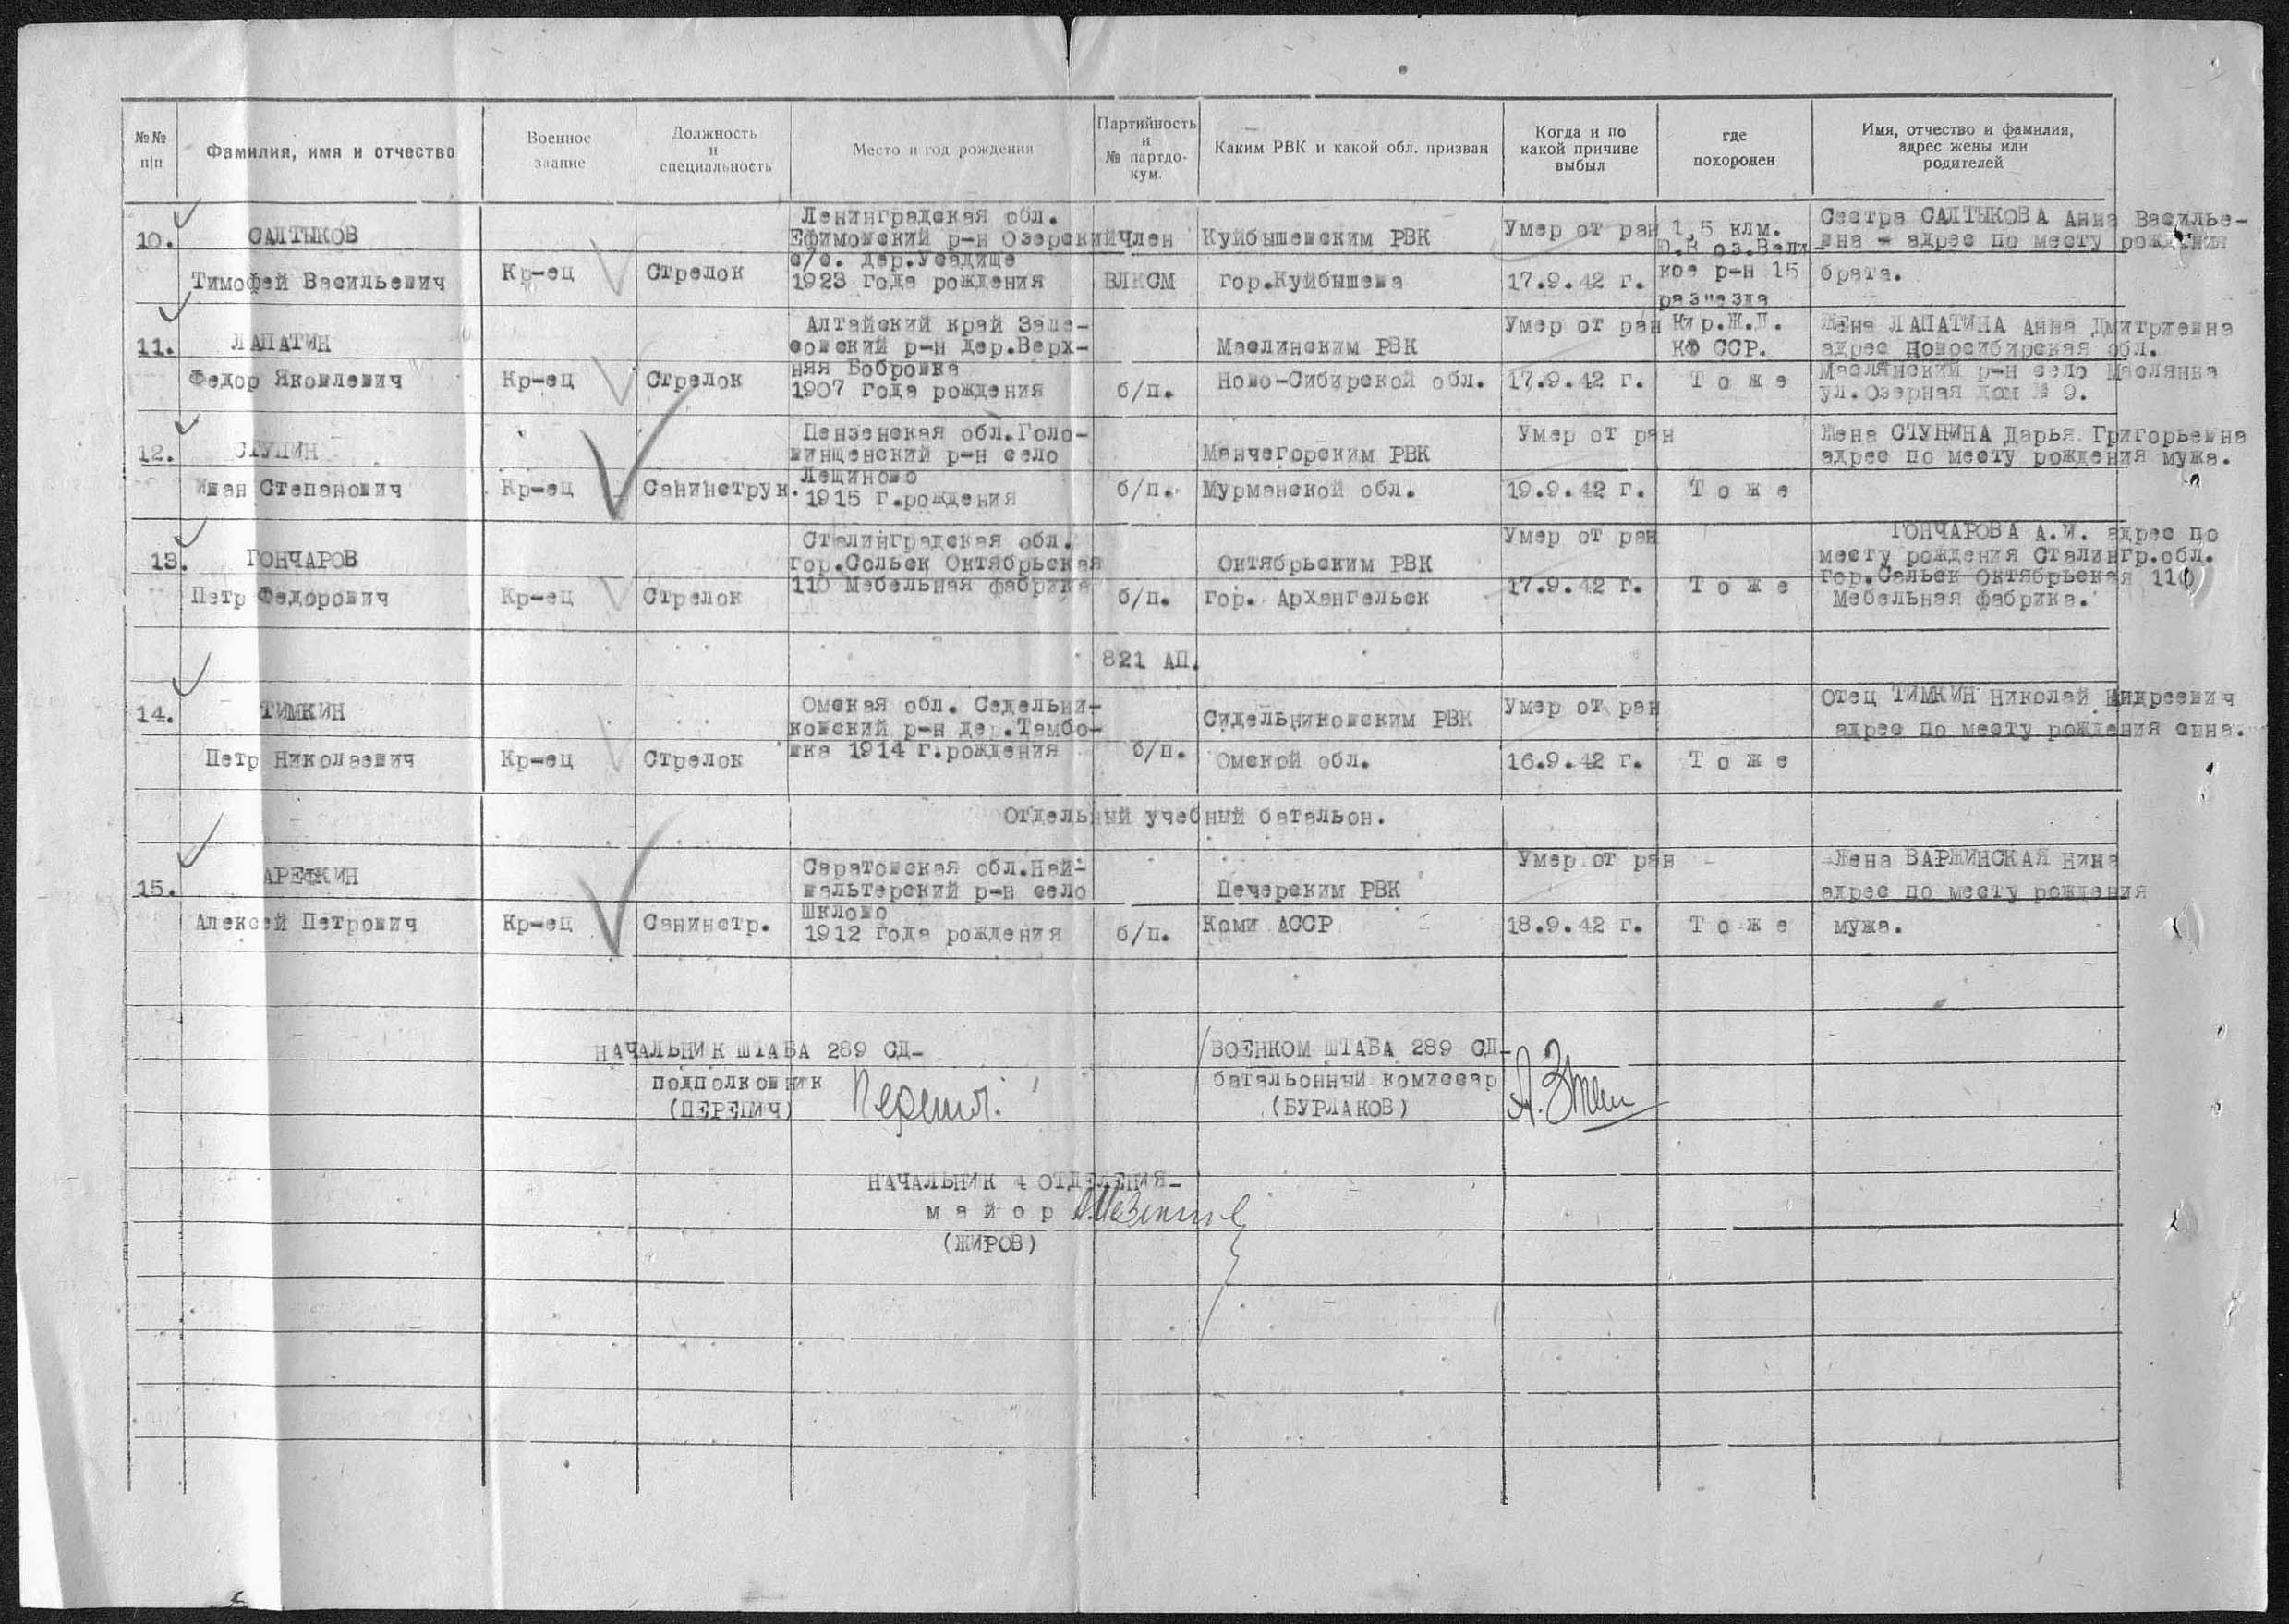 №№ п|п
Фамилия, имя и отчество
Военное звание
Должность и специальность
Место и год рождения
Партийность и № партдо-кум.
Каким РВК и какой обл. призван
Когда и по какой причине выбыл
где похоронен
Имя, отчество и фамилия, адрес жены или родителей
10.
САЛТЫКОВ
Тимофей Васильевич
Кр-ец
Стрелок
Ленинградская обл.
Ефимовский р-н Озерский
с/с. дер.Усадище
1923 года рождения
Член
ВЛКСМ
Куйбышевским РВК
гор.Куйбышева
Умер от ран
17.9.42 г.
1,5 клм.
Ю.В оз.Вели-
кое р-н 15
раз"езда
Сестра САЛТЫКОВА Анна Василье-
вна - адрес по месту рождения
брата.
11.
ЛАПАТИН
Федор Яковлевич
Кр-ец
Стрелок
Алтайский край Зале-
совский р-н дер.Верх-
няя Бобровка
1907 года рождения
б/п.
Маслинским РВК
Ново-Сибирской обл.
Умер от ран
17.9.42 г.
Кир.Ж.Д.
КФ ССР.
Т о ж е
Жена ЛАПАТИНА Анна Дмитриевна
адрес Новосибирская обл.
Маслянский р-н село Маслянка
ул.Озерная дом № 9.
12.
СТУПИН
Иван Степанович
Кр-ец
Санинструк.
Пензенская обл.Голо-
винщенский р-н село
Лещиново
1915 г.рождения
б/п.
Манчегорским РВК
Мурманской обл.
Умер от ран
19.9.42 г.
Т о ж е
Жена СТУПИНА Дарья Григорьевна
адрес по месту рождения мужа.
13.
ГОНЧАРОВ
Петр Федорович
Кр-ец
Стрелок
Сталинградская обл.
гор.Сольск Октябрьская
110 Мебельная фабрика
б/п.
Октябрьским РВК
гор. Архангельск
Умер от ран
17.9.42 г.
Т о ж е
ГОНЧАРОВА А.И. адрес по
месту рождения Сталингр.обл.
гор.Сальск Октябрьская 110
Мебельная фабрика.
821 АП.
14.
ТИМКИН
Петр Николаевич
Кр-ец
Стрелок
Омская обл. Седельни-
ковский р-н дер.Тамбо-
вка 1914 г.рождения
б/п.
Сидельниковским РВК
Омской обл.
Умер от ран
16.9.42 г.
Т о ж е
Отец ТИМКИН Николай Андреевич
адрес по месту рождения сына.
Отдельный учебный батальон.
15.
АРЕФКИН
Алексей Петрович
Кр-ец
Санинстр.
Саратовская обл.Най-
вальтерский р-н село
Шклово
1912 года рождения
б/п.
Печерским РВК
Коми АССР
Умер от ран
18.9.42 г.
Т о ж е
Жена ВАРЖИНСКАЯ Нина
адрес по месту рождения
мужа.
НАЧАЛЬНИК ШТАБА 289 СД-
подполковник
(ПЕРЕВИЧ)
ВОЕНКОМ ШТАБА 289 СД-
батальонный комиссар
(БУРЛАКОВ)
НАЧАЛЬНИК 4 ОТДЕЛЕНИЯ-
м а й о р
(ЖИРОВ)